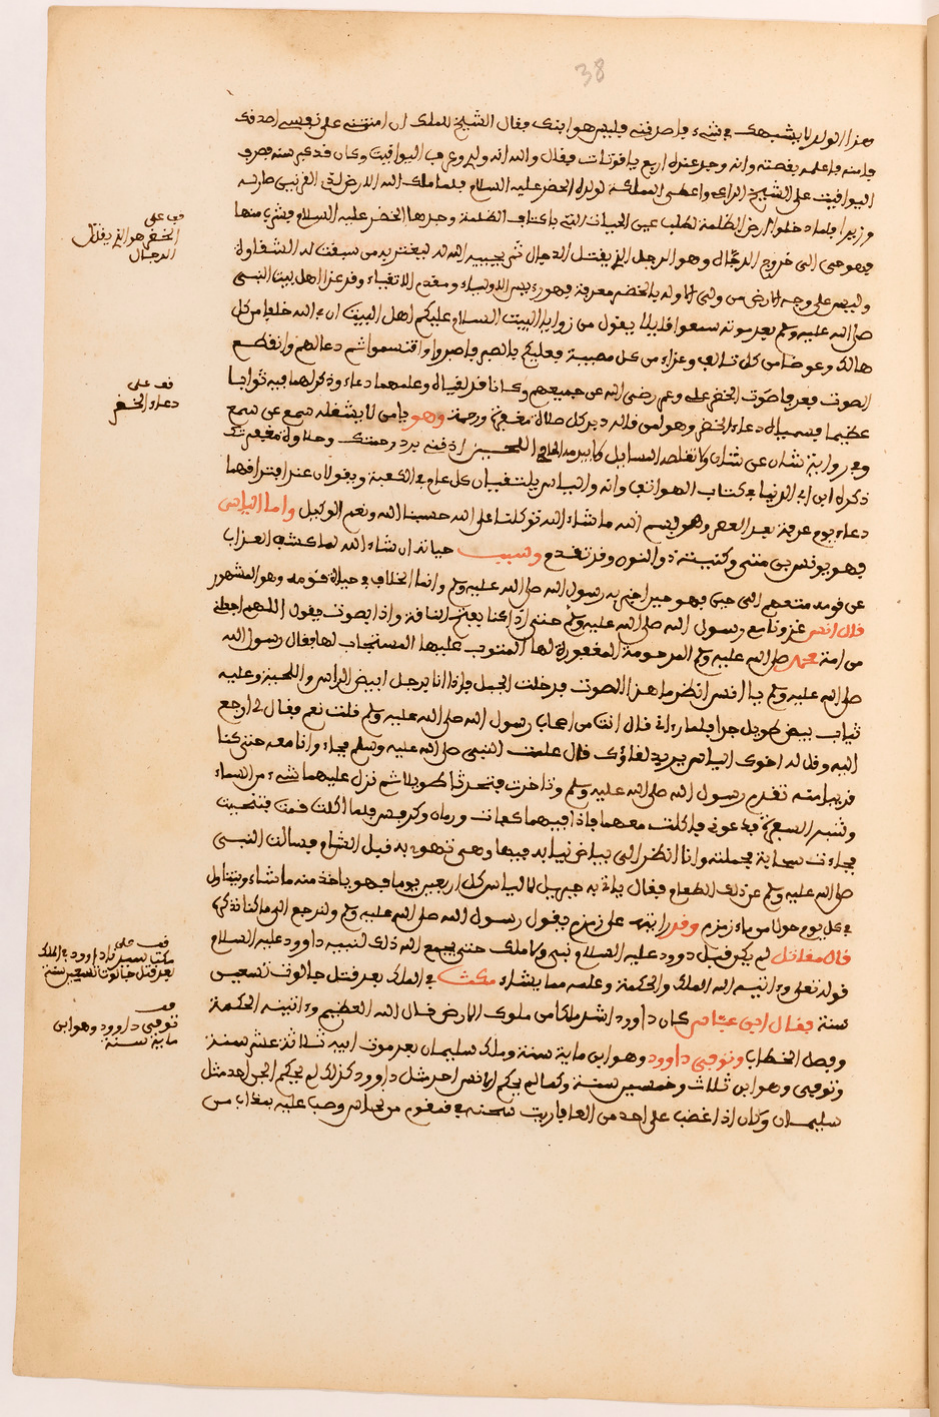 38
وهذا الولد لا يشبهك في شيء فاصدقني فليس هو ابنك فقال الشيخ للملك ان امنتني على نفسي اصدقك
فامنه فاعلمه بقصته وانه وجد عنده اربع ياقوتات فقال والله انه ولدي وعرف اليواقيت وكان قد كبر سنه فصرف
اليواقيت على الشيخ الراعي واعطى المملكة لولده الخضر عليه السلام فلما ملك الله الارض لذي القرنين صار له
وزيرا فلما دخلوا ارض الظلمة لطلب عين الحياة التي باكناف الظلمة وجدها الخضر عليه السلام فشرب منها
فهو حي الى خروج الدجال وهو الرجل الذي يقتل الدجال ثم يحييه الله له ليغتر به من سبقت له الشقاوة
وليس على وجه الارض من ولي الا وله بالخضر معرفة فهو رءيس الاولياء ومقدم الاتقياء وقد عزا اهل بيت النبي
صلى الله عليه وسلم بعد موته سمعوا قايلا يقول من زوايا البيت السلام عليكم اهل البيت ان في الله خلفا من كل
هالك وعوضا من كل تالف وعزاء من كل مصيبة فعليكم بالصبر فاصبروا واحتسبوا ثم دعا لهم وانقطع
الصوت فعرفا صوت الخضر علي وعمر رضي الله عن جميعهم وكانا قد لقياه وعلمهما دعاء وذكر لهما فيه ثوابا
عظيما فسمياه دعاء الخضر وهو لمن قاله دبر كل صلاة مغفرة ورحمة وهو يا من لا يشغله سمع عن سمع
وفي رواية شان عن شان ولا تغلطه المسايل ولا يبرمه الحاح الملحين اذقني برد رحمتك وحلاوة مغفرتك
ذكره ابن ابي الدنيا في كتاب الهواتف وانه والياس يلتقيان كل عام في الكعبة ويقولان عند افتراقهما
دعاء يوم عرفة بعد العصر وهو بسم الله ما شاء الله توكلنا على الله حسبنا الله ونعم الوكيل واما الياس
فهو يونس بن متى وكنيته ذو النون وقد تقدم وسبب حياته ان شاء الله لما كشف العذاب
عن قومه متعهم الى حين فهو حي اخبر به رسول الله صلى الله عليه وسلم وانما الخلاف في حياة قومه وهو المشهور
قال انس غزونا مع رسول الله صلى الله عليه وسلم حتى اذا كنا بفج الناقة واذا بصوت يقول اللهم اجعلني
من امة محمد صلى الله عليه وسلم المرحومة المغفورة لها المتوب عليها المستجاب لها فقال رسول الله
صلى الله عليه وسلم يا انس انظر ما هذا الصوت فدخلت الجبل فاذا انا برجل ابيض الراس واللحية وعليه
ثياب بيض طويل جدا فلما رءاني قال انت من اصحاب رسول الله صلى الله عليه وسلم قلت نعم فقال لي ارجع
اليه وقل له اخوك الياس يريد لقاؤك قال علمت النبي صلى الله عليه وسلم فجاء وانا معه حتى كنا
قريبا منه تقدم رسول الله صلى الله عليه وسلم وتاخرت فتحدثا طويلا ثم نزل عليهما شيء من السماء
وشبه السفرة فدعوني فاكلت معهما فاذا فيهما كمات ورمان وكرفس فلما اكلت قمت فتنحيت
فجاءت سحابة فحملته وانا انظر الى بياض ثيابه فيها وهي تهوي به قبل الشام فسالت النبي
صلى الله عليه وسلم عن ذلك الطعام فقال ياتي به جبريل لالياس كل اربعين يوما فهو ياخذ منه ما شاء ويتناول
في كل يوم حولا من ماء زمزم وقد رايته على زمزم يقول رسول الله صلى الله عليه وسلم ولنرجع الى ما كنا نذكره
قال مقاتل لم يكن قبل داوود عليه السلام نبي ولا ملك حتى جمع الله ذلك لنبيه داوود عليه السلام
قوله تعلى وءاتيه الله الملك والحكمة وعلمه مما يشاء مكث في الملك بعد قتل جالوت تسعين
سنة فقال ابن عباس كان داوود اشد ملكا من ملوك الارض قال الله العظيم وءاتينه الحكمة
وفصل الخطاب وتوفي داوود وهو ابن ماية سنة وملك سليمان بعد موت ابيه ثلاثة عشر سنة
وتوفي وهو ابن ثلاث وخمسين سنة وكما لم يحكم الانس احد مثل داوود كذلك لم يحكم الجن احد مثل
سليمان وكان اذا غضب على احد من العفاريت سجنه في قمقوم من نحاس وصب عليه بعذاب من
قف على
الخضر هو الذي يقتل
الدجال
قف على
دعاء الخضر
قف على
مكث سيدنا داوود في الملك
بعد قتل جالوت تسعين سنة
قف
توفي داوود وهو ابن
ماية سنة